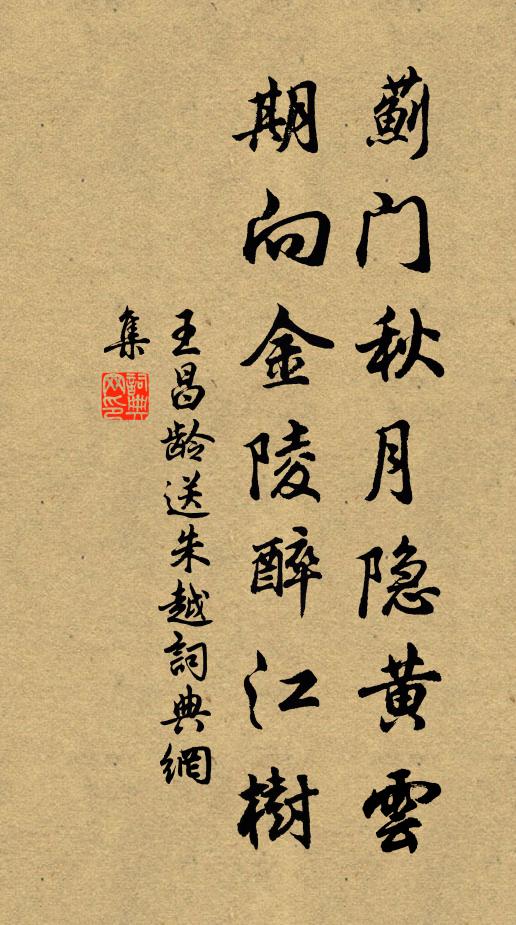 薊门秋月隐黄雲
期向金陵醉江樹
王昌龄送朱越詞典網
集
詞典